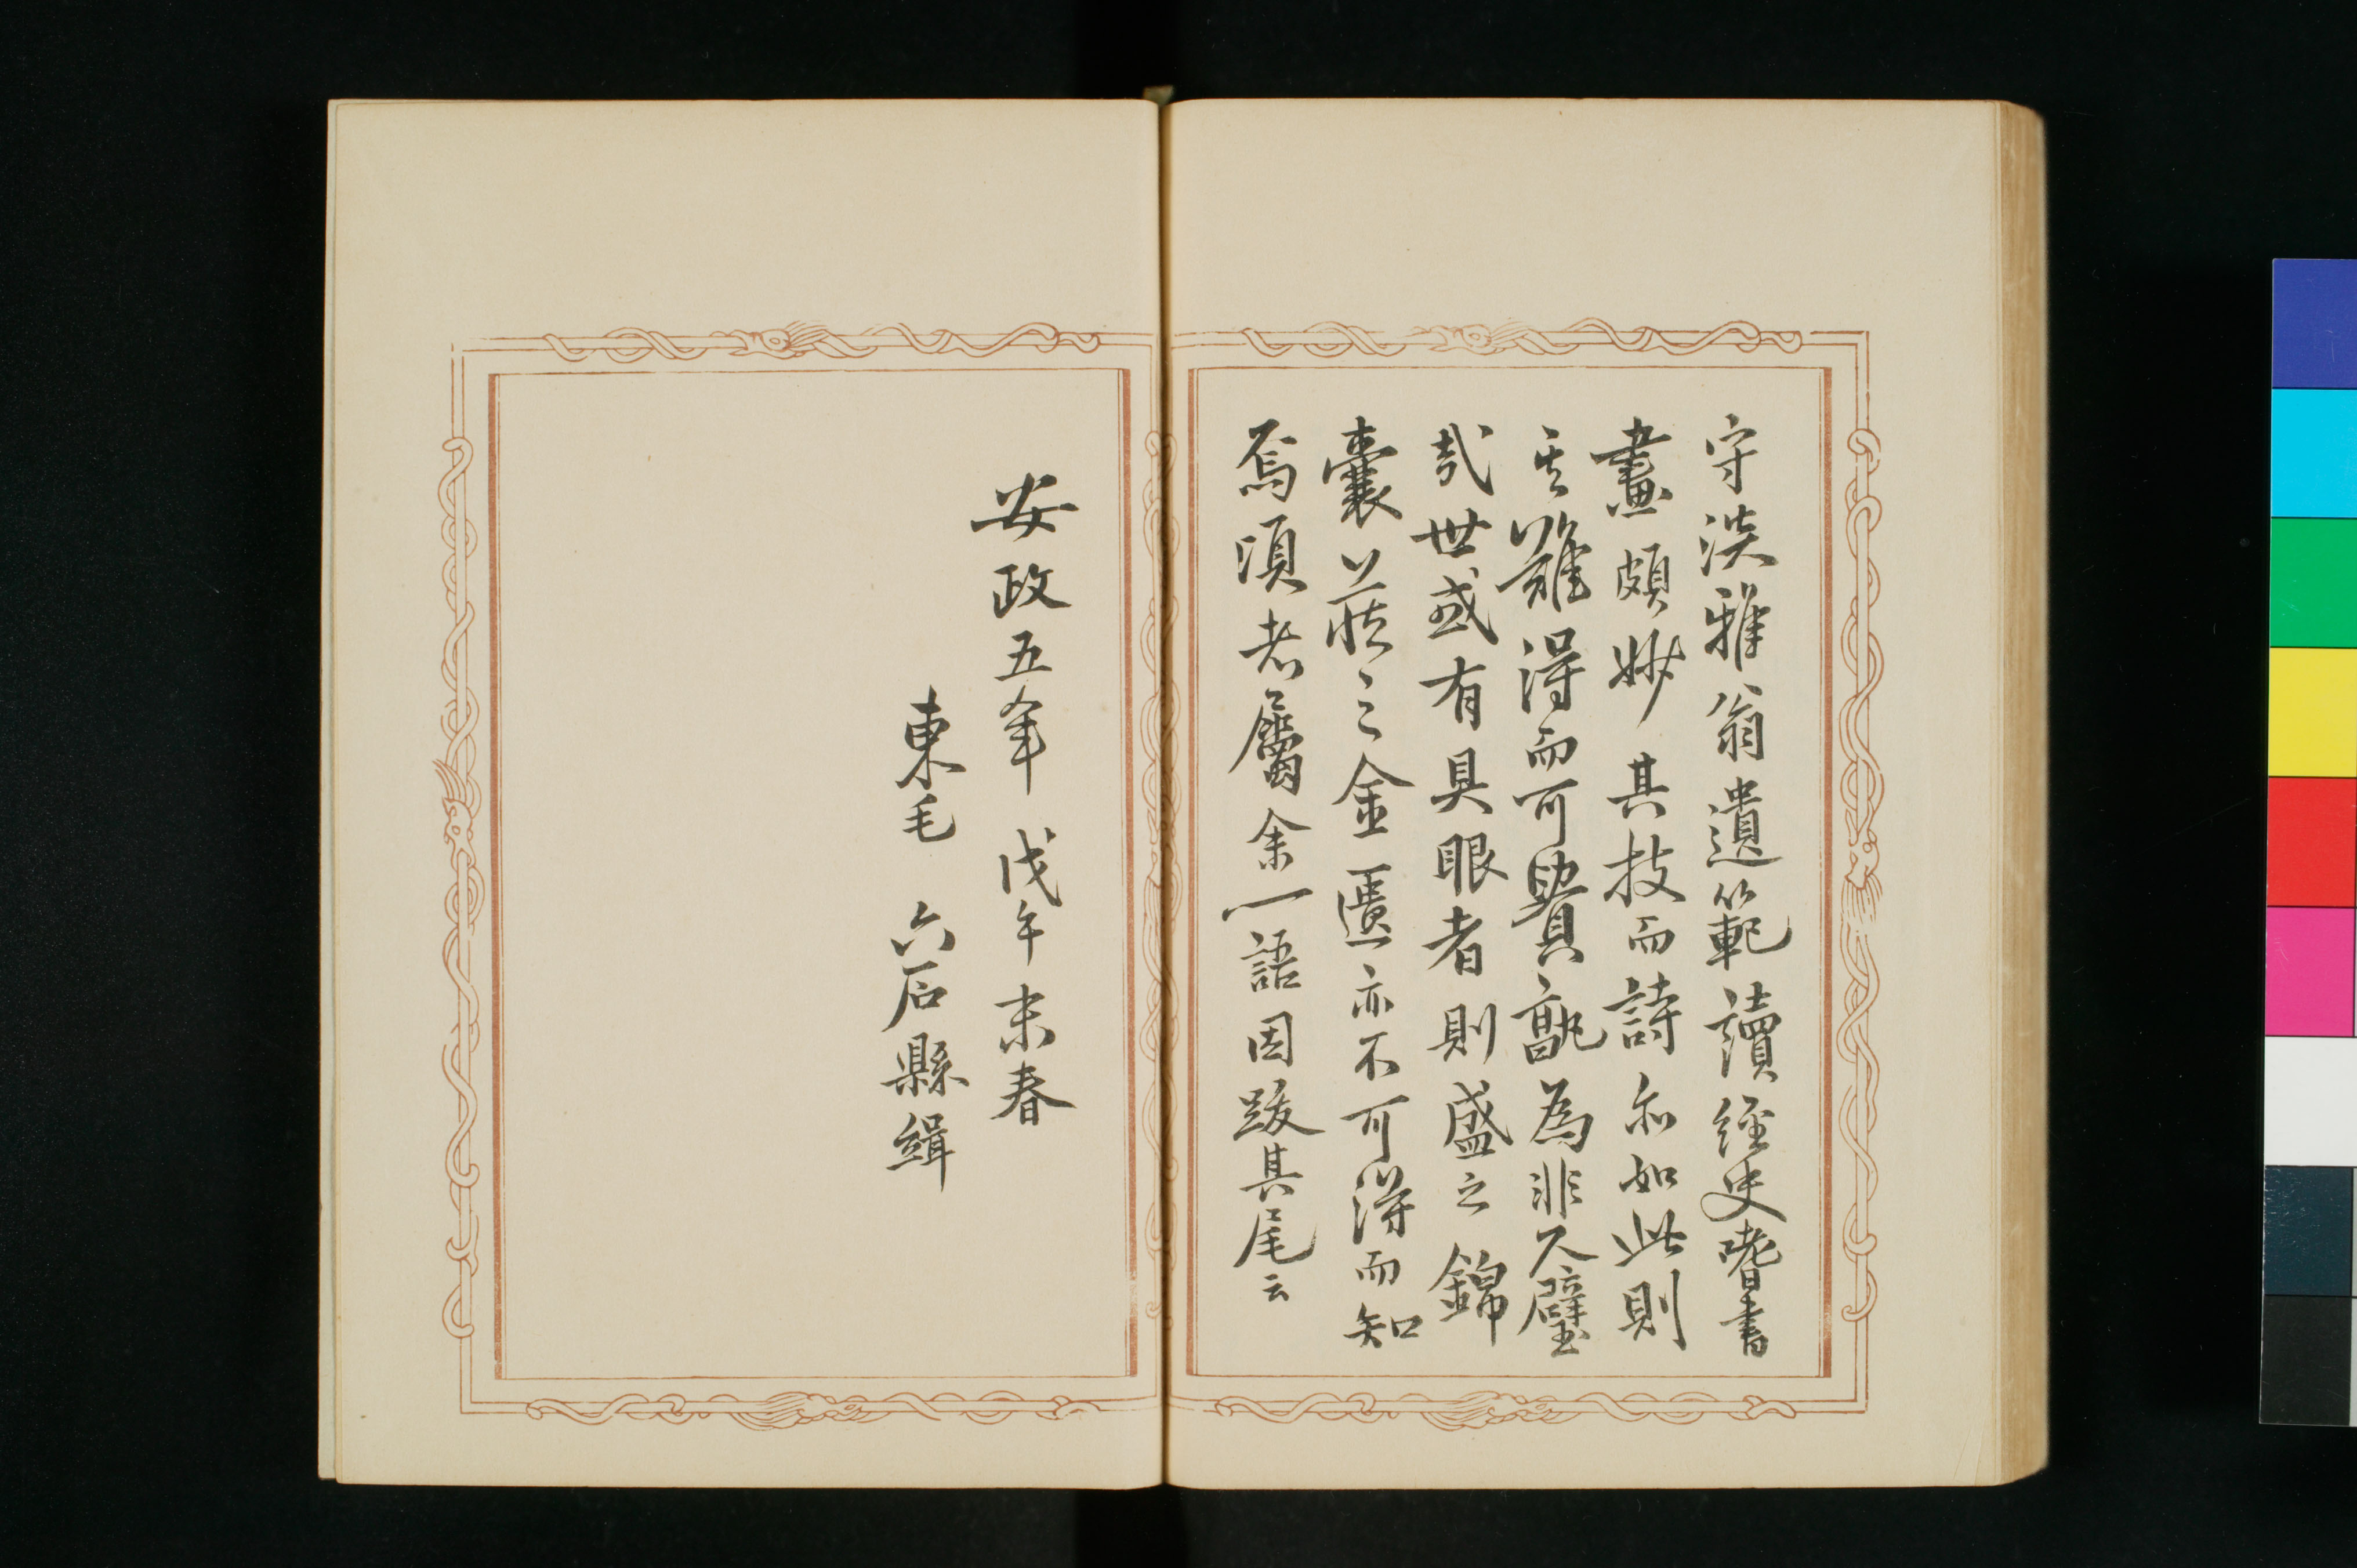 守淡雅翁遺範讀經史嗜書
畫頗妙其技而詩亦如此則
其難得而可貴孰為非天璧
哉世或有具眼者則盛之錦
囊以藏之金匱亦不可得而知
焉須老屬余一語因跋其尾云
安政五年戊午末春
東毛 六石縣緝